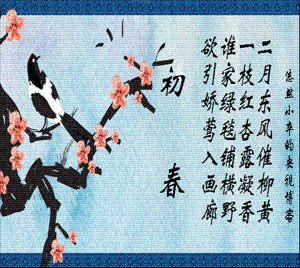 悠然小的央视博客
二月东风催柳黄
一枝红杏露凝香
谁家绿毯铺横野
欲引娇莺入画廊
初春